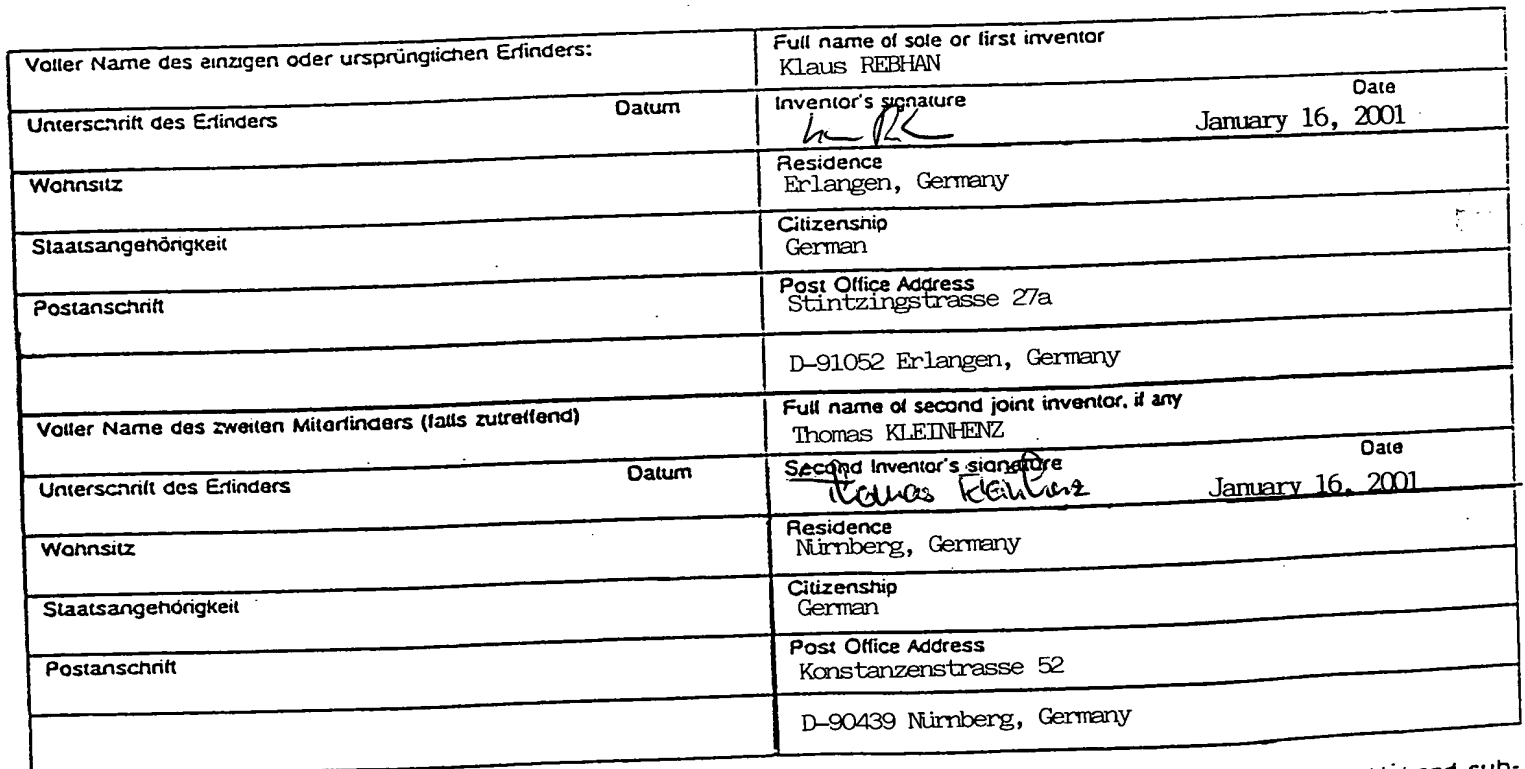 Voller Name des einzigen oder ursprünglichen Erfinders:
Full name of sole or first inventor
Klaus REBHAN
Unterschrift des Erfinders Datum
Inventor's signature Date
January 16, 2001
Wohnsitz
Residence
Erlangen, Germany
Staatsangehörigkeit
Citizenship
German
Postanschrift
Post Office Address
Stintzingstrasse 27a
D-91052 Erlangen, Germany
Voller Name des zweiten Miterfinders (falls zutreffend)
Full name of second joint inventor, if any
Thomas KLEINHENZ
Unterschrift des Erfinders Datum
Second Inventor's signature Date
Thomas Kleinhenz January 16, 2001
Wohnsitz
Residence
Nürnberg, Germany
Staatsangehörigkeit
Citizenship
German
Postanschrift
Post Office Address
Konstanzenstrasse 52
D-90439 Nürnberg, Germany
and sub-